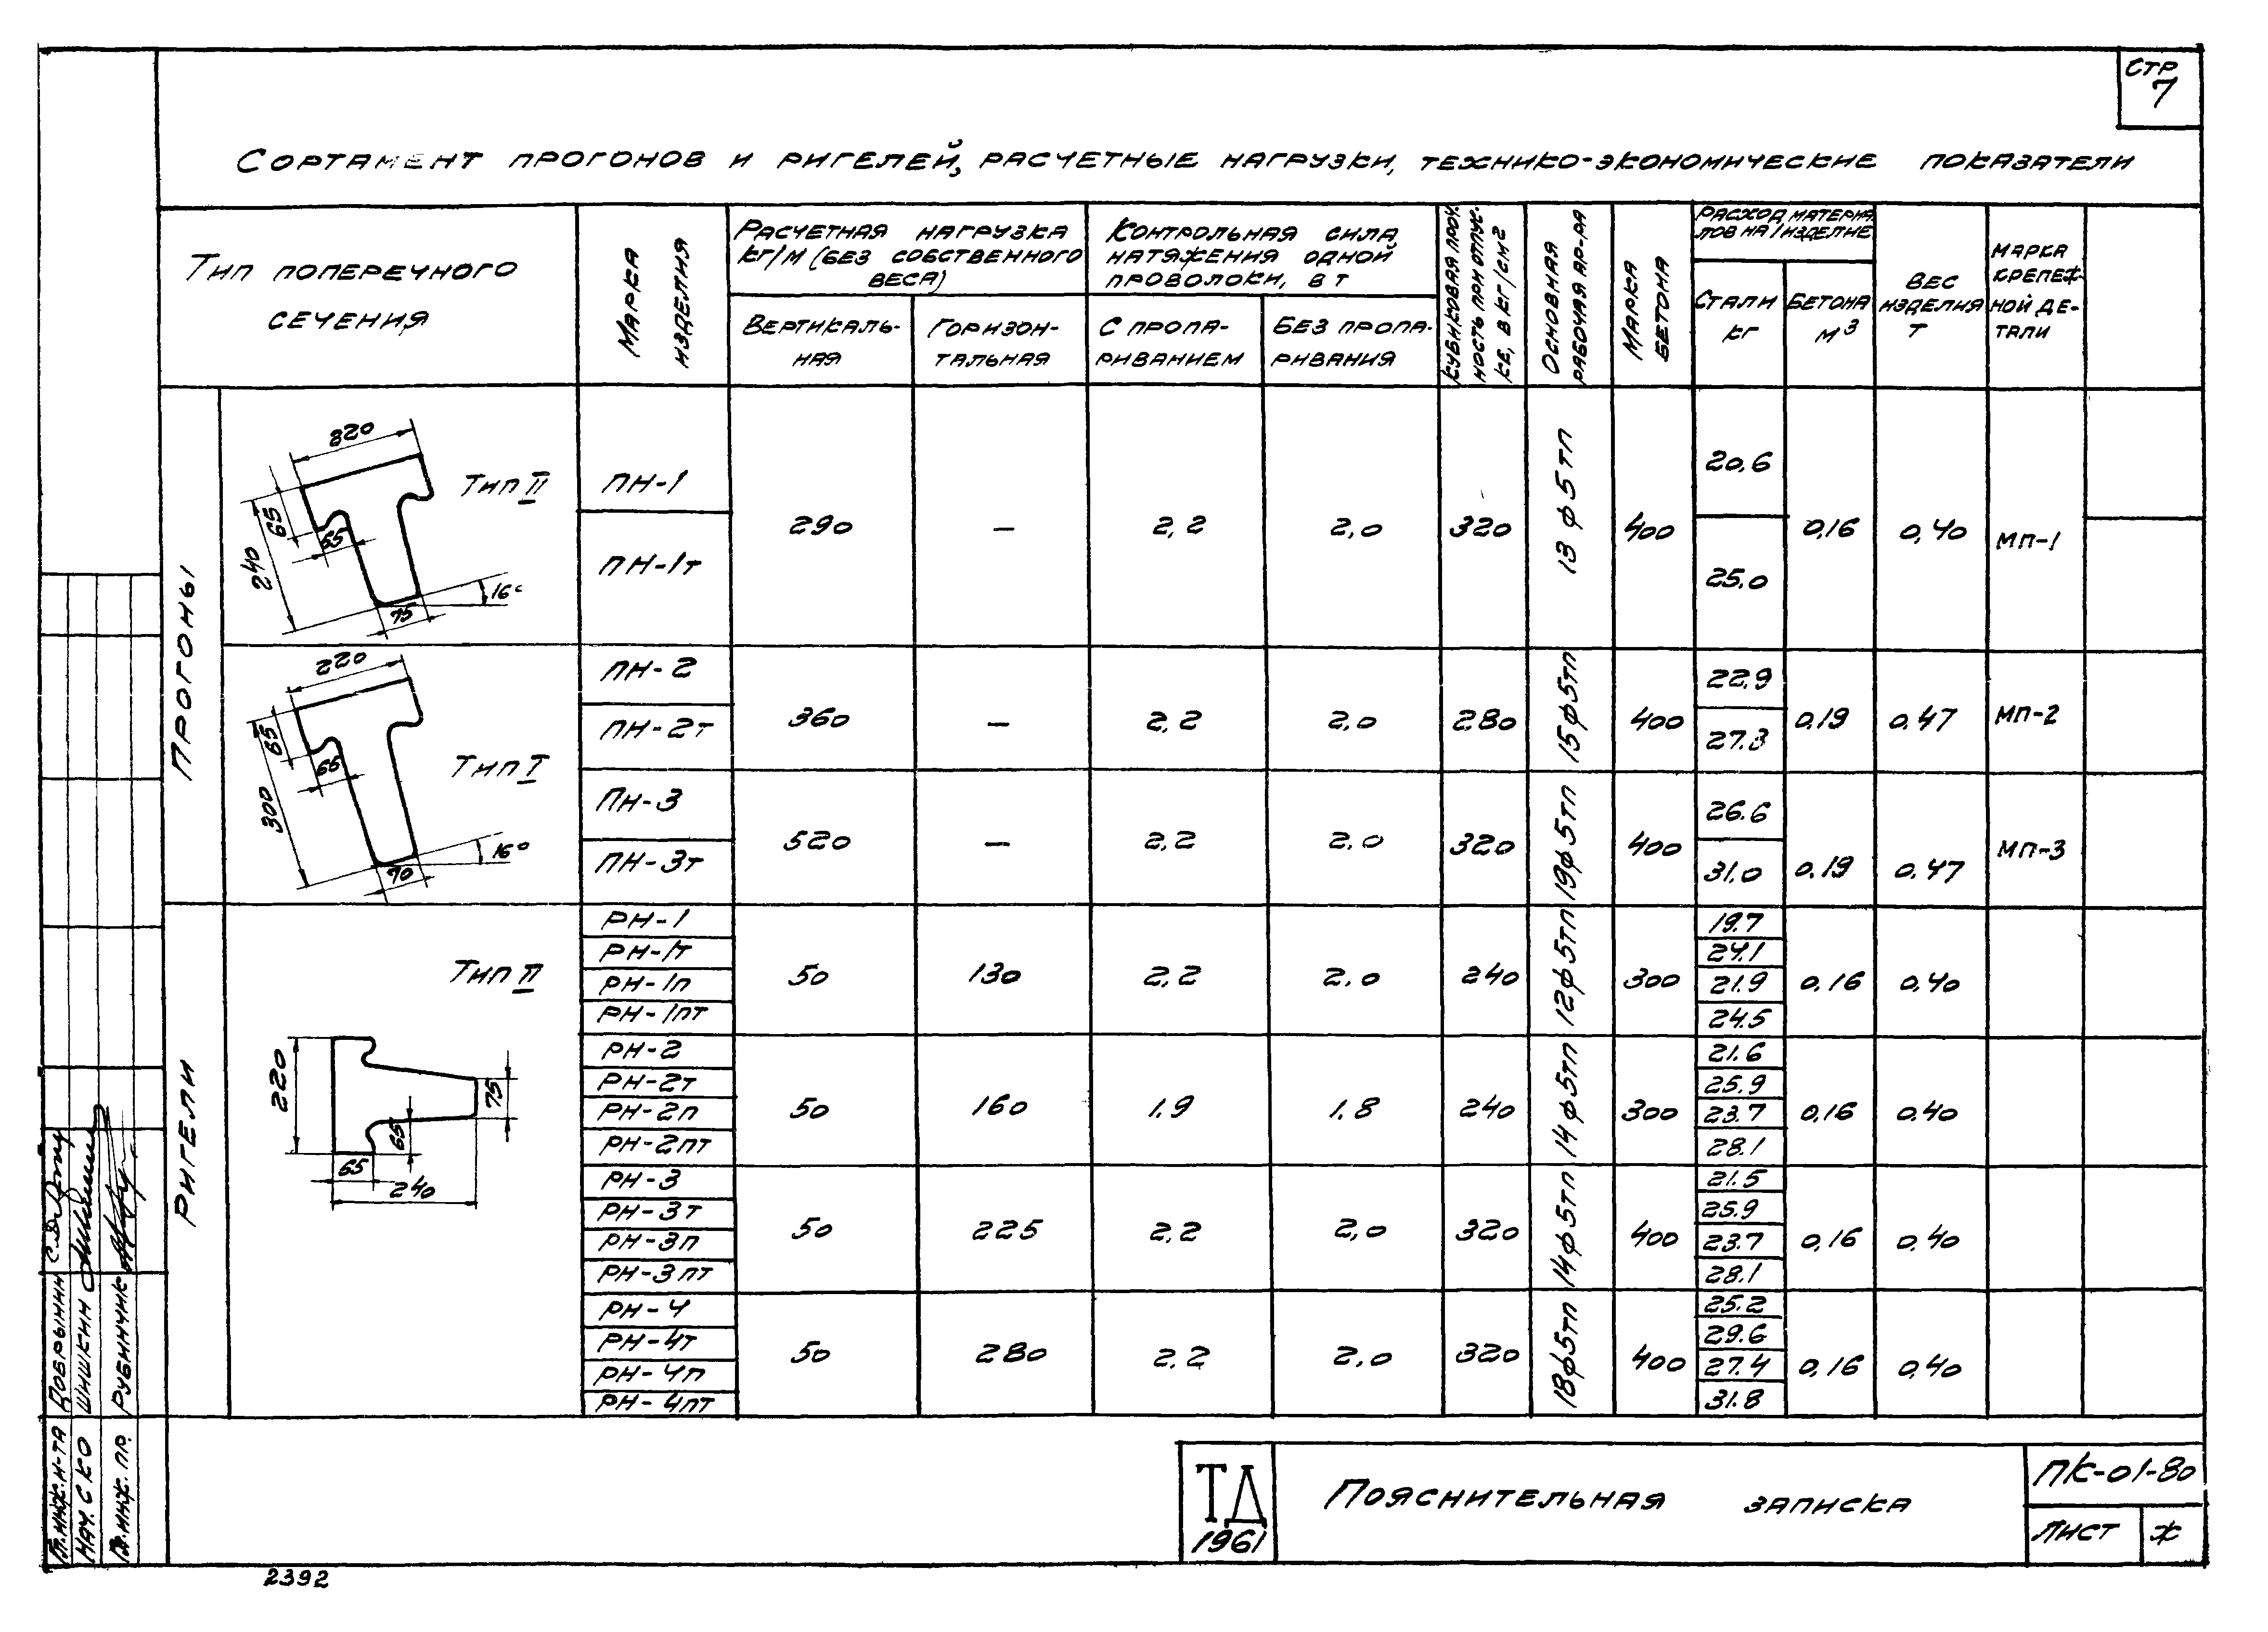 Стр
7
Сортамент прогонов и ригелей, расчетные нагрузки, технико-экономические показатели
Тип поперечного
сечения
Марка
изделия
Расчетная нагрузка
кг/м (без собственного
веса)
Вертикаль-
ная
Горизон-
тальная
Контрольная сила
натяжения одной
проволоки, в т
С пропа-
риванием
Без пропа-
ривания
Кубиковая проч-
ность при отпус-
ке, в кг/см²
Основная
рабочая ар-ра
Марка
бетона
Расход материа
лов на 1 изделие
Стали
кг
Бетона
м³
Вес
изделия
т
Марка
крепеж-
ной де-
тали
Прогоны
220
65
65
240
75
16°
Тип II
ПН-1
ПН-1т
290
—
2,2
2,0
320
13 ф 5тп
400
20,6
25,0
0,16
0,40
МП-1
220
65
65
300
70
16°
Тип I
ПН-2
ПН-2т
360
—
2,2
2,0
280
15ф5тп
400
22,9
27.3
0,19
0,47
МП-2
ПН-3
ПН-3т
520
—
2,2
2,0
320
19ф5тп
400
26.6
31.0
0,19
0,47
МП-3
Ригели
Тип II
220
75
65
65
240
РН-1
РН-1т
РН-1п
РН-1пт
50
130
2,2
2,0
240
12ф5тп
300
19.7
24.1
21.9
24.5
0,16
0,40
РН-2
РН-2т
РН-2п
РН-2пт
50
160
1.9
1.8
240
14ф5тп
300
21.6
25.9
23.7
28.1
0,16
0,40
РН-3
РН-3т
РН-3п
РН-3пт
50
225
2,2
2,0
320
14ф5тп
400
21.5
25.9
23.7
28.1
0,16
0,40
РН-4
РН-4т
РН-4п
РН-4пт
50
280
2,2
2,0
320
18ф5тп
400
25.2
29.6
27.4
31.8
0,16
0,40
Гл. инж. и-та Добрынин
Нач. СКО Шишкин
Гл. инж. пр. Рубинчик
ТД
1961
Пояснительная записка
ПК-01-80
Лист Ж
2392